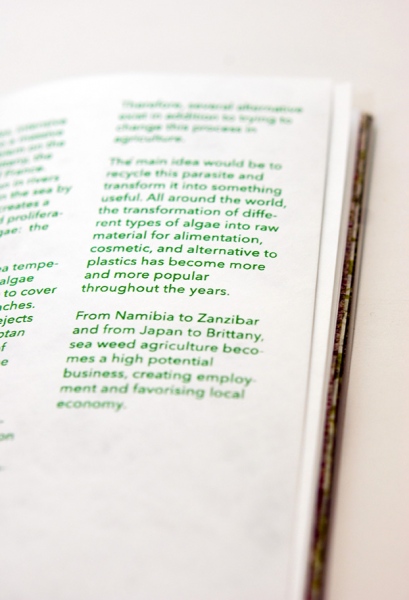 intensive
massive
on the
the
France.
in rivers
the sea by
creates a
d prolifera-
gae: the
ea tempe-
algae
to cover
aches.
ejects
otan
of
e
on
Therefore, several alternative
exist in addition to trying to
change this process in
agriculture.
The main idea would be to
recycle this parasite and
transform it into something
useful. All around the world,
the transformation of diffe-
rent types of algae into raw
material for alimentation,
cosmetic, and alternative to
plastics has become more
and more popular
throughout the years.
From Namibia to Zanzibar
and from Japan to Brittany,
sea weed agriculture beco-
mes a high potential
business, creating employ-
ment and favorising local
economy.